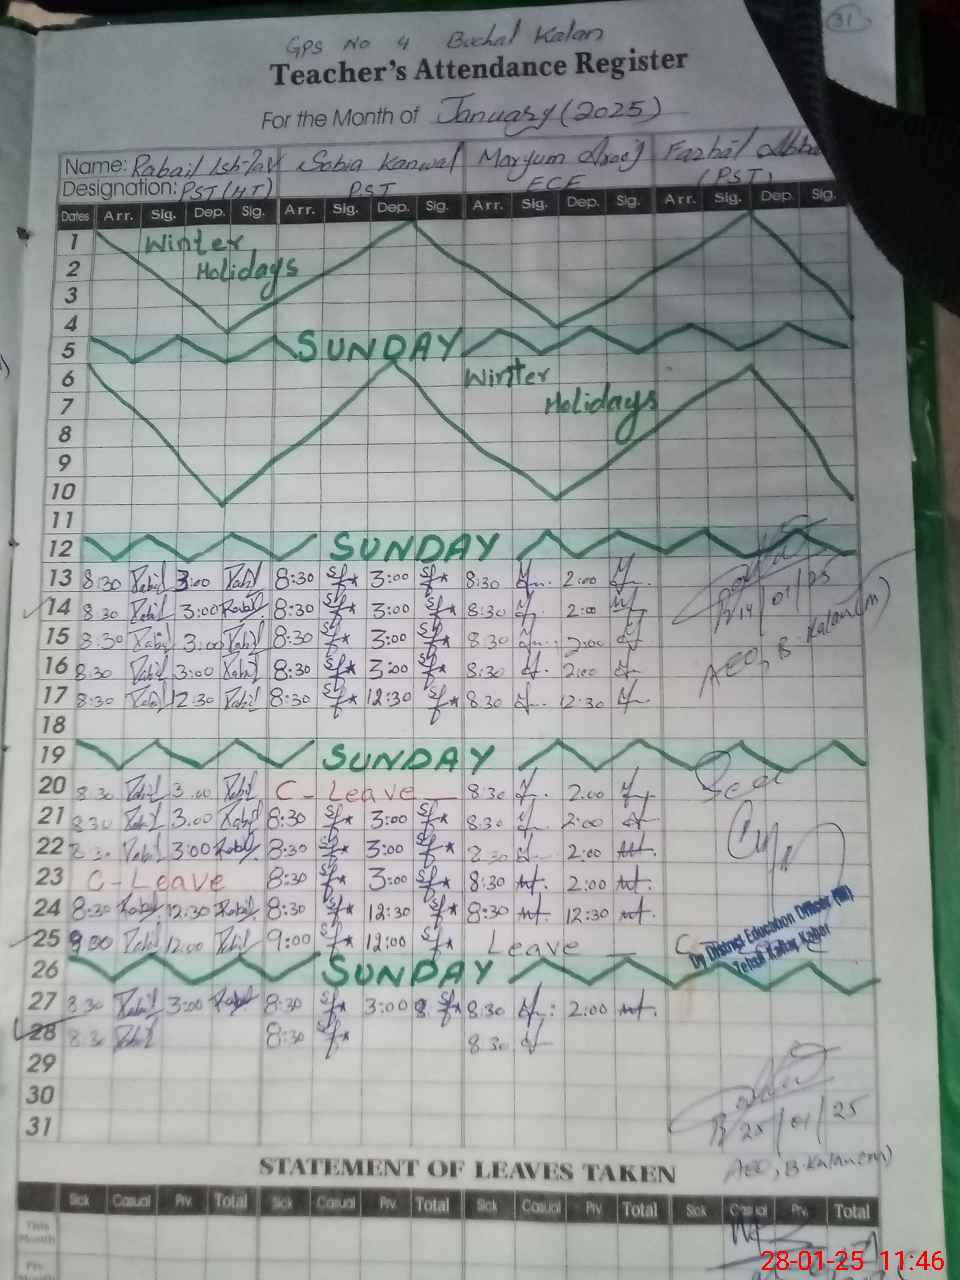 31
GPS No 4 Buchal Kalan
Teacher's Attendance Register
For the Month of January (2025)
Name: Rabail Ish Sobia Kanwal Maryum Fazhal
Designation: PST (HT) PST ECE (PST)
Dates Arr. Sig. Dep. Sig. Arr. Sig. Dep. Sig. Arr. Sig. Dep. Sig. Arr. Sig. Dep. Sig.
1 Winter
2 Holidays
3
4
5 SUNDAY
6 Winter
7 Holidays
8
9
10
11
12 SUNDAY
13 8:30 Rabil 3:00 Rabil 8:30 3:00 8:30 2:00
14 8:30 Rabil 3:00 Rabil 8:30 3:00 8:30 2:00
14/01/25
15 8:30 Rabil 3:00 Rabil 8:30 3:00 8:30 2:00
AEO, B. Kalan(m)
16 8:30 Rabil 3:00 Rabil 8:30 3:00 8:30 2:00
17 8:30 Rabil 12:30 Rabil 8:30 12:30 8:30 12:30
18
19 SUNDAY
20 8:30 Rabil 3:00 Rabil C-Leave 8:30 2:00
21 8:30 Rabil 3:00 Rabil 8:30 3:00 8:30 2:00
22 8:30 Rabil 3:00 Rabil 8:30 3:00 8:30 2:00
23 C-Leave 8:30 3:00 8:30 2:00
24 8:30 Rabil 12:30 Rabil 8:30 12:30 8:30 12:30
25 9:00 Rabil 12:00 Rabil 9:00 12:00 Leave
Dy District Education Officer (M)
Tehsil Kallar Kahar
26 SUNDAY
27 8:30 Rabil 3:00 Rabil 8:30 3:00 8:30 2:00
28 8:30 Rabil 8:30 8:30
29
30
31
25/01/25
AEO, B. Kalan(m)
STATEMENT OF LEAVES TAKEN
Sick Casual Prv. Total Sick Casual Prv. Total Sick Casual Prv. Total Sick Casual Prv. Total
This Month
Prv. Month
28-01-25 11:46